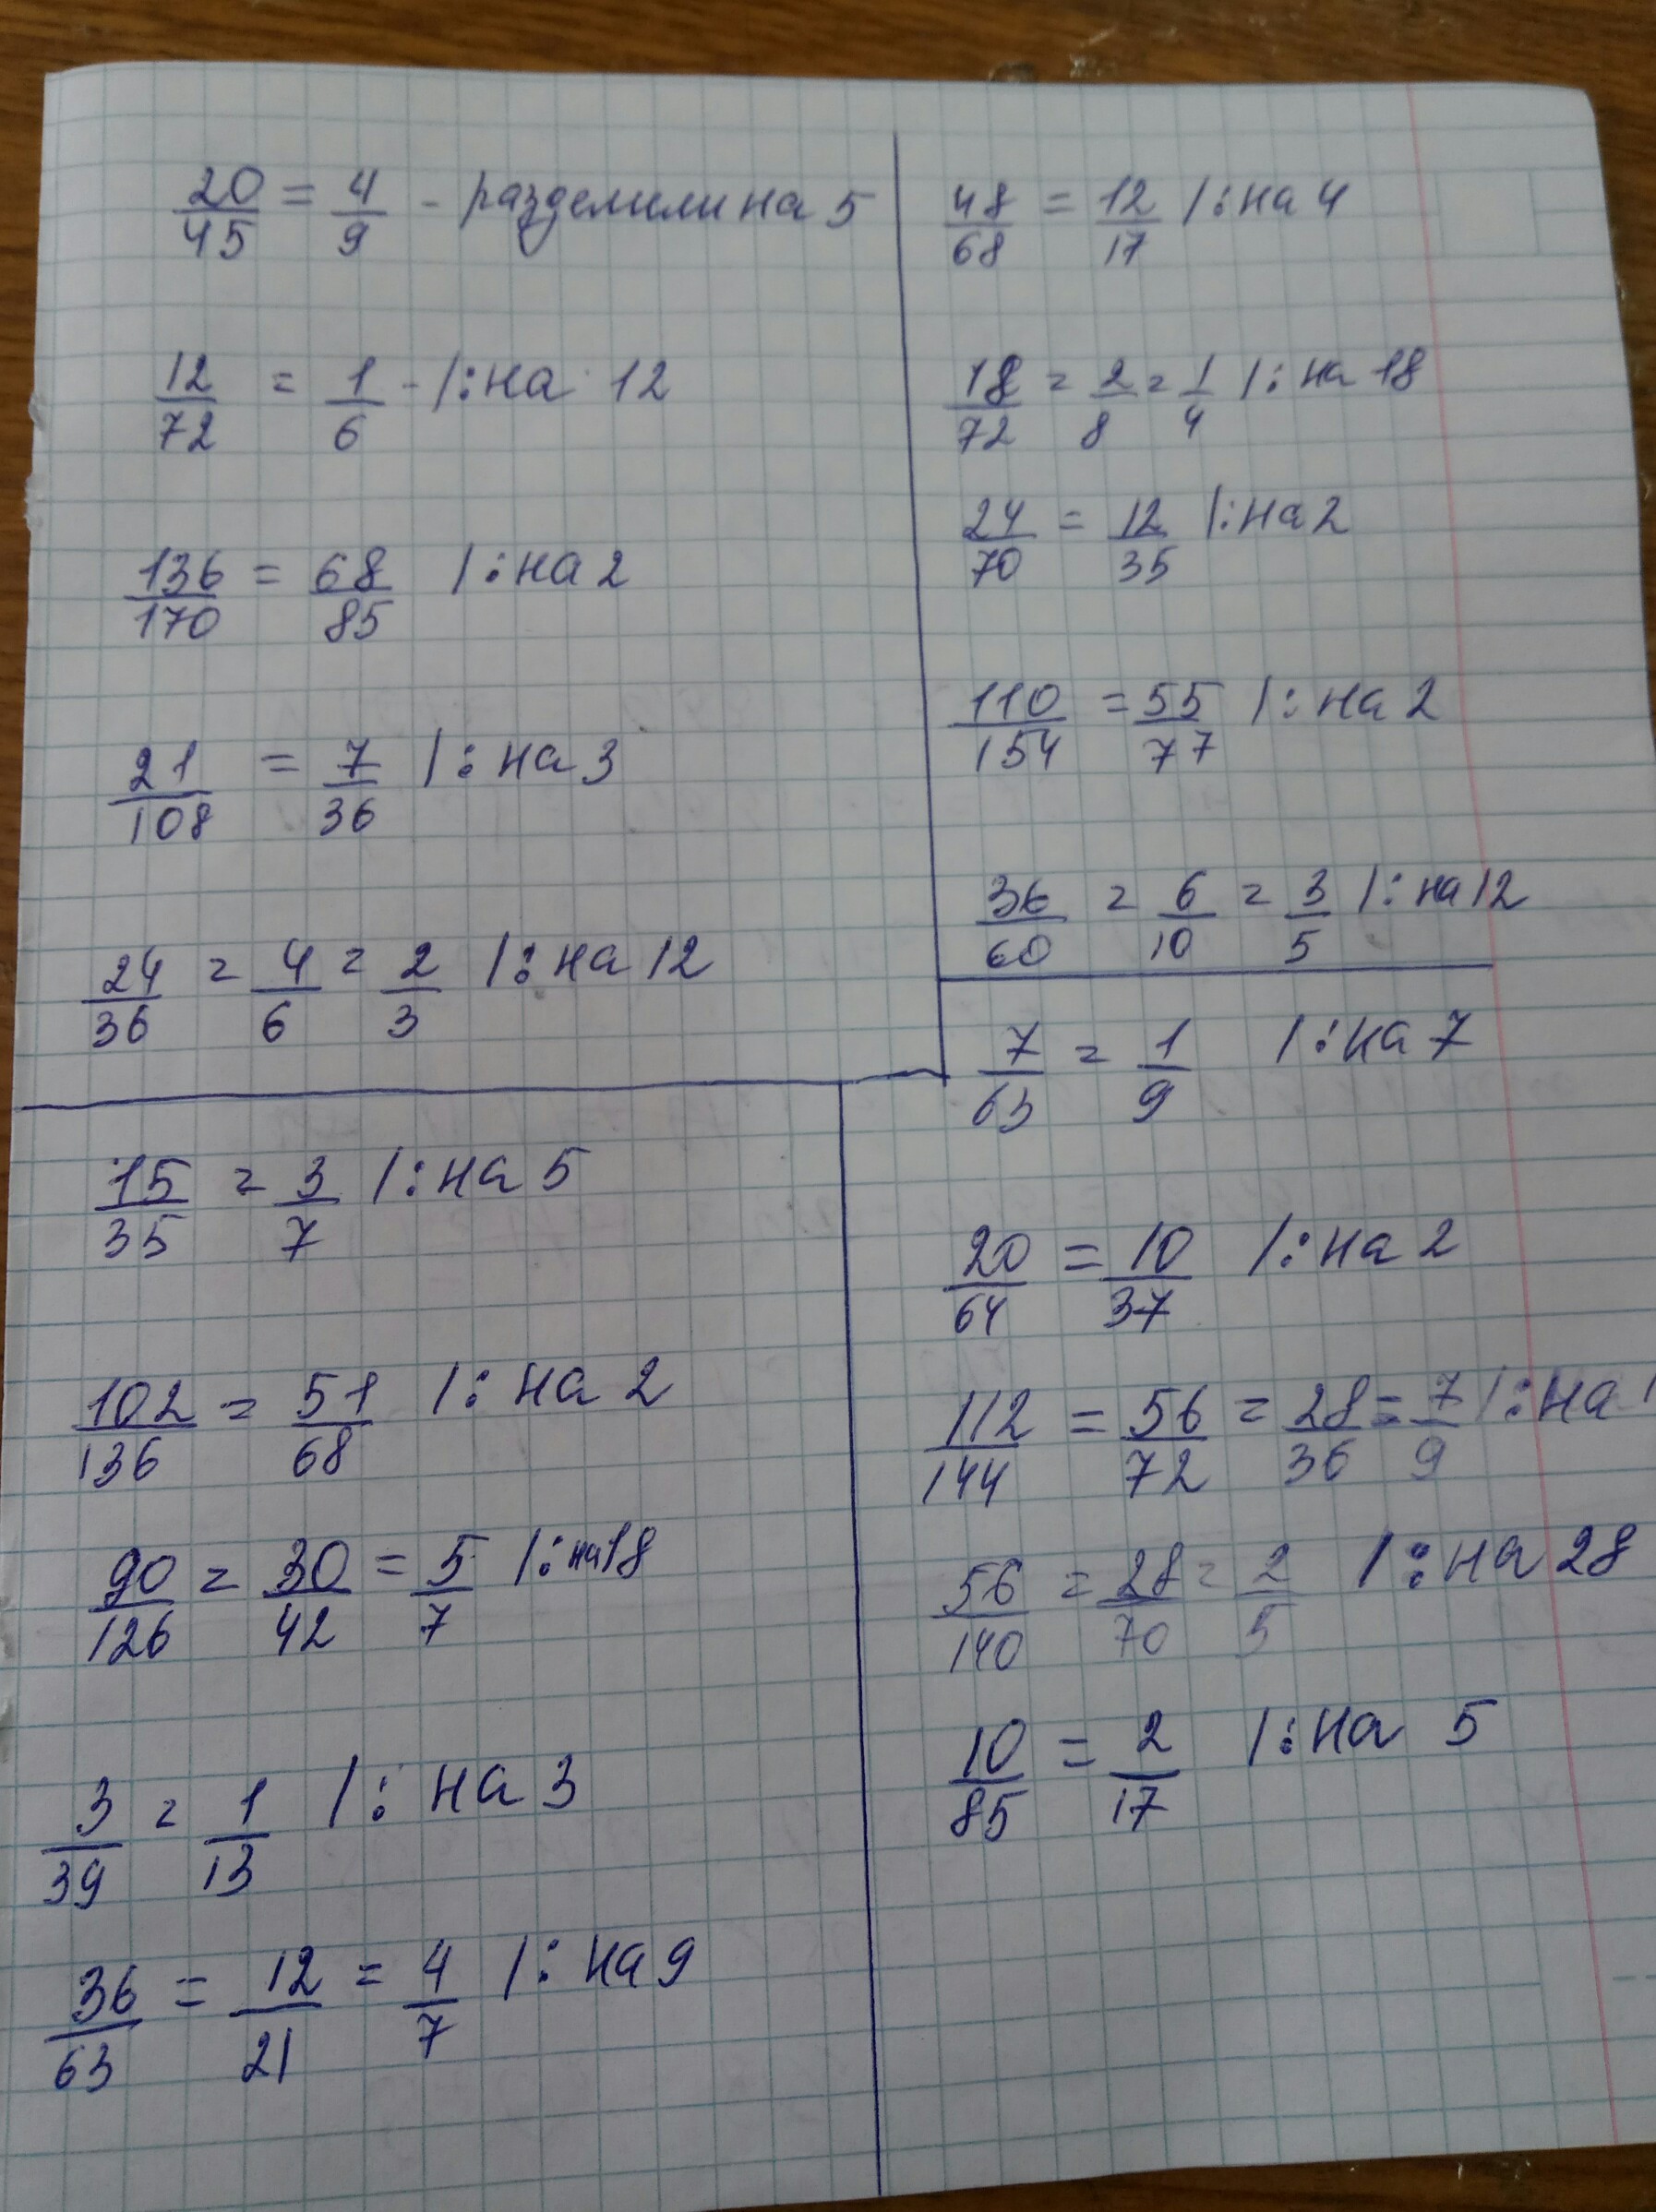 20/45 = 4/9 - разделили на 5
12/72 = 1/6 - /: на 12
136/170 = 68/85 /: на 2
21/108 = 7/36 /: на 3
24/36 = 4/6 = 2/3 /: на 12
48/68 = 12/17 /: на 4
18/72 = 2/8 = 1/4 /: на 18
24/70 = 12/35 /: на 2
110/154 = 55/77 /: на 2
36/60 = 6/10 = 3/5 /: на 12
15/35 = 3/7 /: на 5
102/136 = 51/68 /: на 2
90/126 = 30/42 = 5/7 /: на 18
3/39 = 1/13 /: на 3
36/63 = 12/21 = 4/7 /: на 9
7/63 = 1/9 /: на 7
20/64 = 10/37 /: на 2
112/144 = 56/72 = 28/36 = 7/9 /: на
56/140 = 28/70 = 2/5 /: на 28
10/85 = 2/17 /: на 5